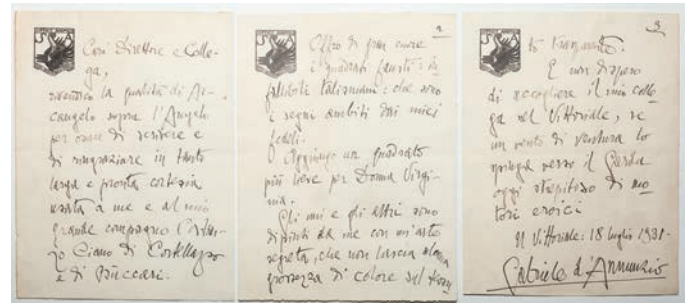 Cari Direttore e Colle-
ga,
rivendico la qualità di Ar-
cangelo sopra l'Angelo
per osare di scrivere e
di ringraziare in tanto
larga e pronta cortesia
usata a me e al mio
grande compagno Costan-
zo Ciano di Cortellazzo
e di Buccari.
2
Offro di gran cuore
i quadrati fausti: in-
fallibili talismani: che sono
i segni ambiti dai miei
fedeli.
Aggiungo un quadrato
più lieve per Donna Virgi-
nia.
Gli uni e gli altri sono
dipinti da me con un'arte
segreta, che non lascia alcuna
grossezza di colore sul
3
to trasparente.
E non dispero
di accogliere il mio colle-
ga nel Vittoriale, se
un vento di ventura lo
spinga verso il Garda
oggi strepitoso di mo-
tori eroici
Il Vittoriale: 18 luglio 1931.
Gabriele d'Annunzio